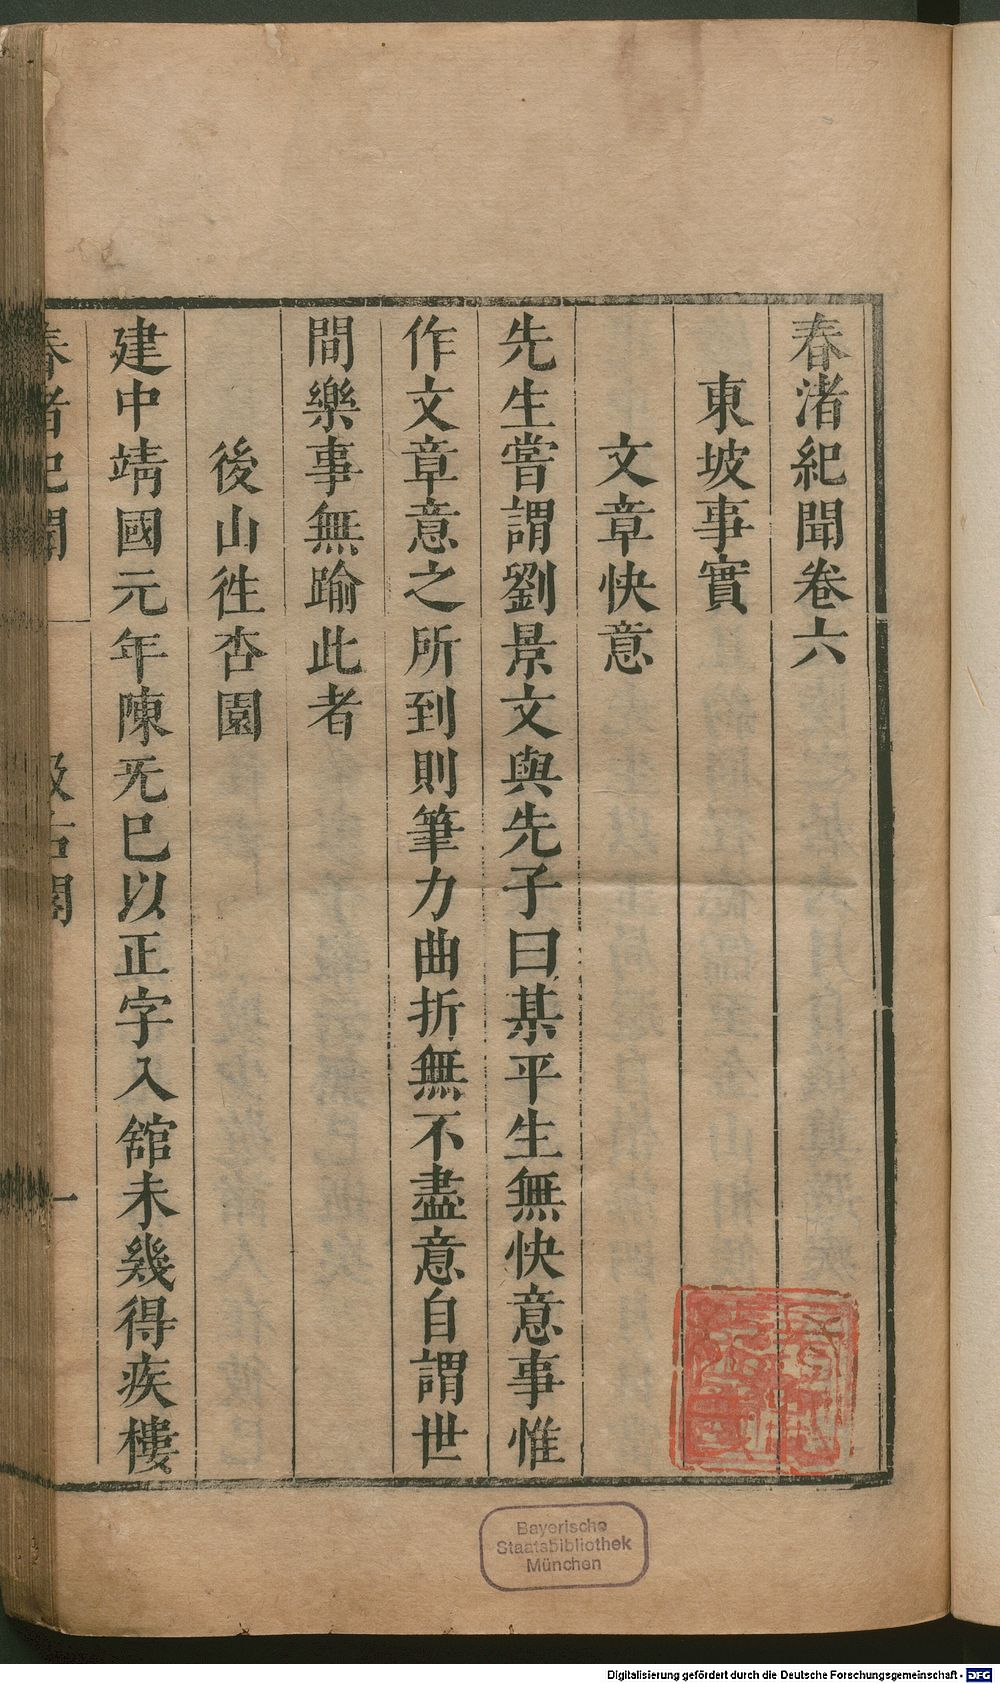 春渚紀聞卷六
東坡事實
文章快意
先生嘗謂劉景文與先子曰某平生無快意事惟
作文章意之所到則筆力曲折無不盡意自謂世
間樂事無踰此者
後山徃杏園
建中靖國元年陳旡巳以正字入舘未幾得疾樓
春渚紀聞
汲古閣
一
Bayerische
Staatsbibliothek
München
Digitalisierung gefördert durch die Deutsche Forschungsgemeinschaft - DFG